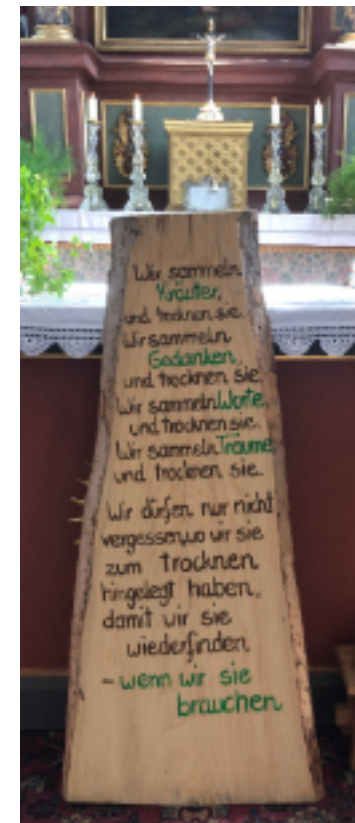 Wir sammeln
Kräuter,
und trocknen sie.
Wir sammeln
Gedanken,
und trocknen sie.
Wir sammeln Worte,
und trocknen sie.
Wir sammeln Träume,
und trocknen sie.
Wir dürfen nur nicht
vergessen, wo wir sie
zum trocknen
hingelegt haben,
damit wir sie
wiederfinden
- wenn wir sie
brauchen